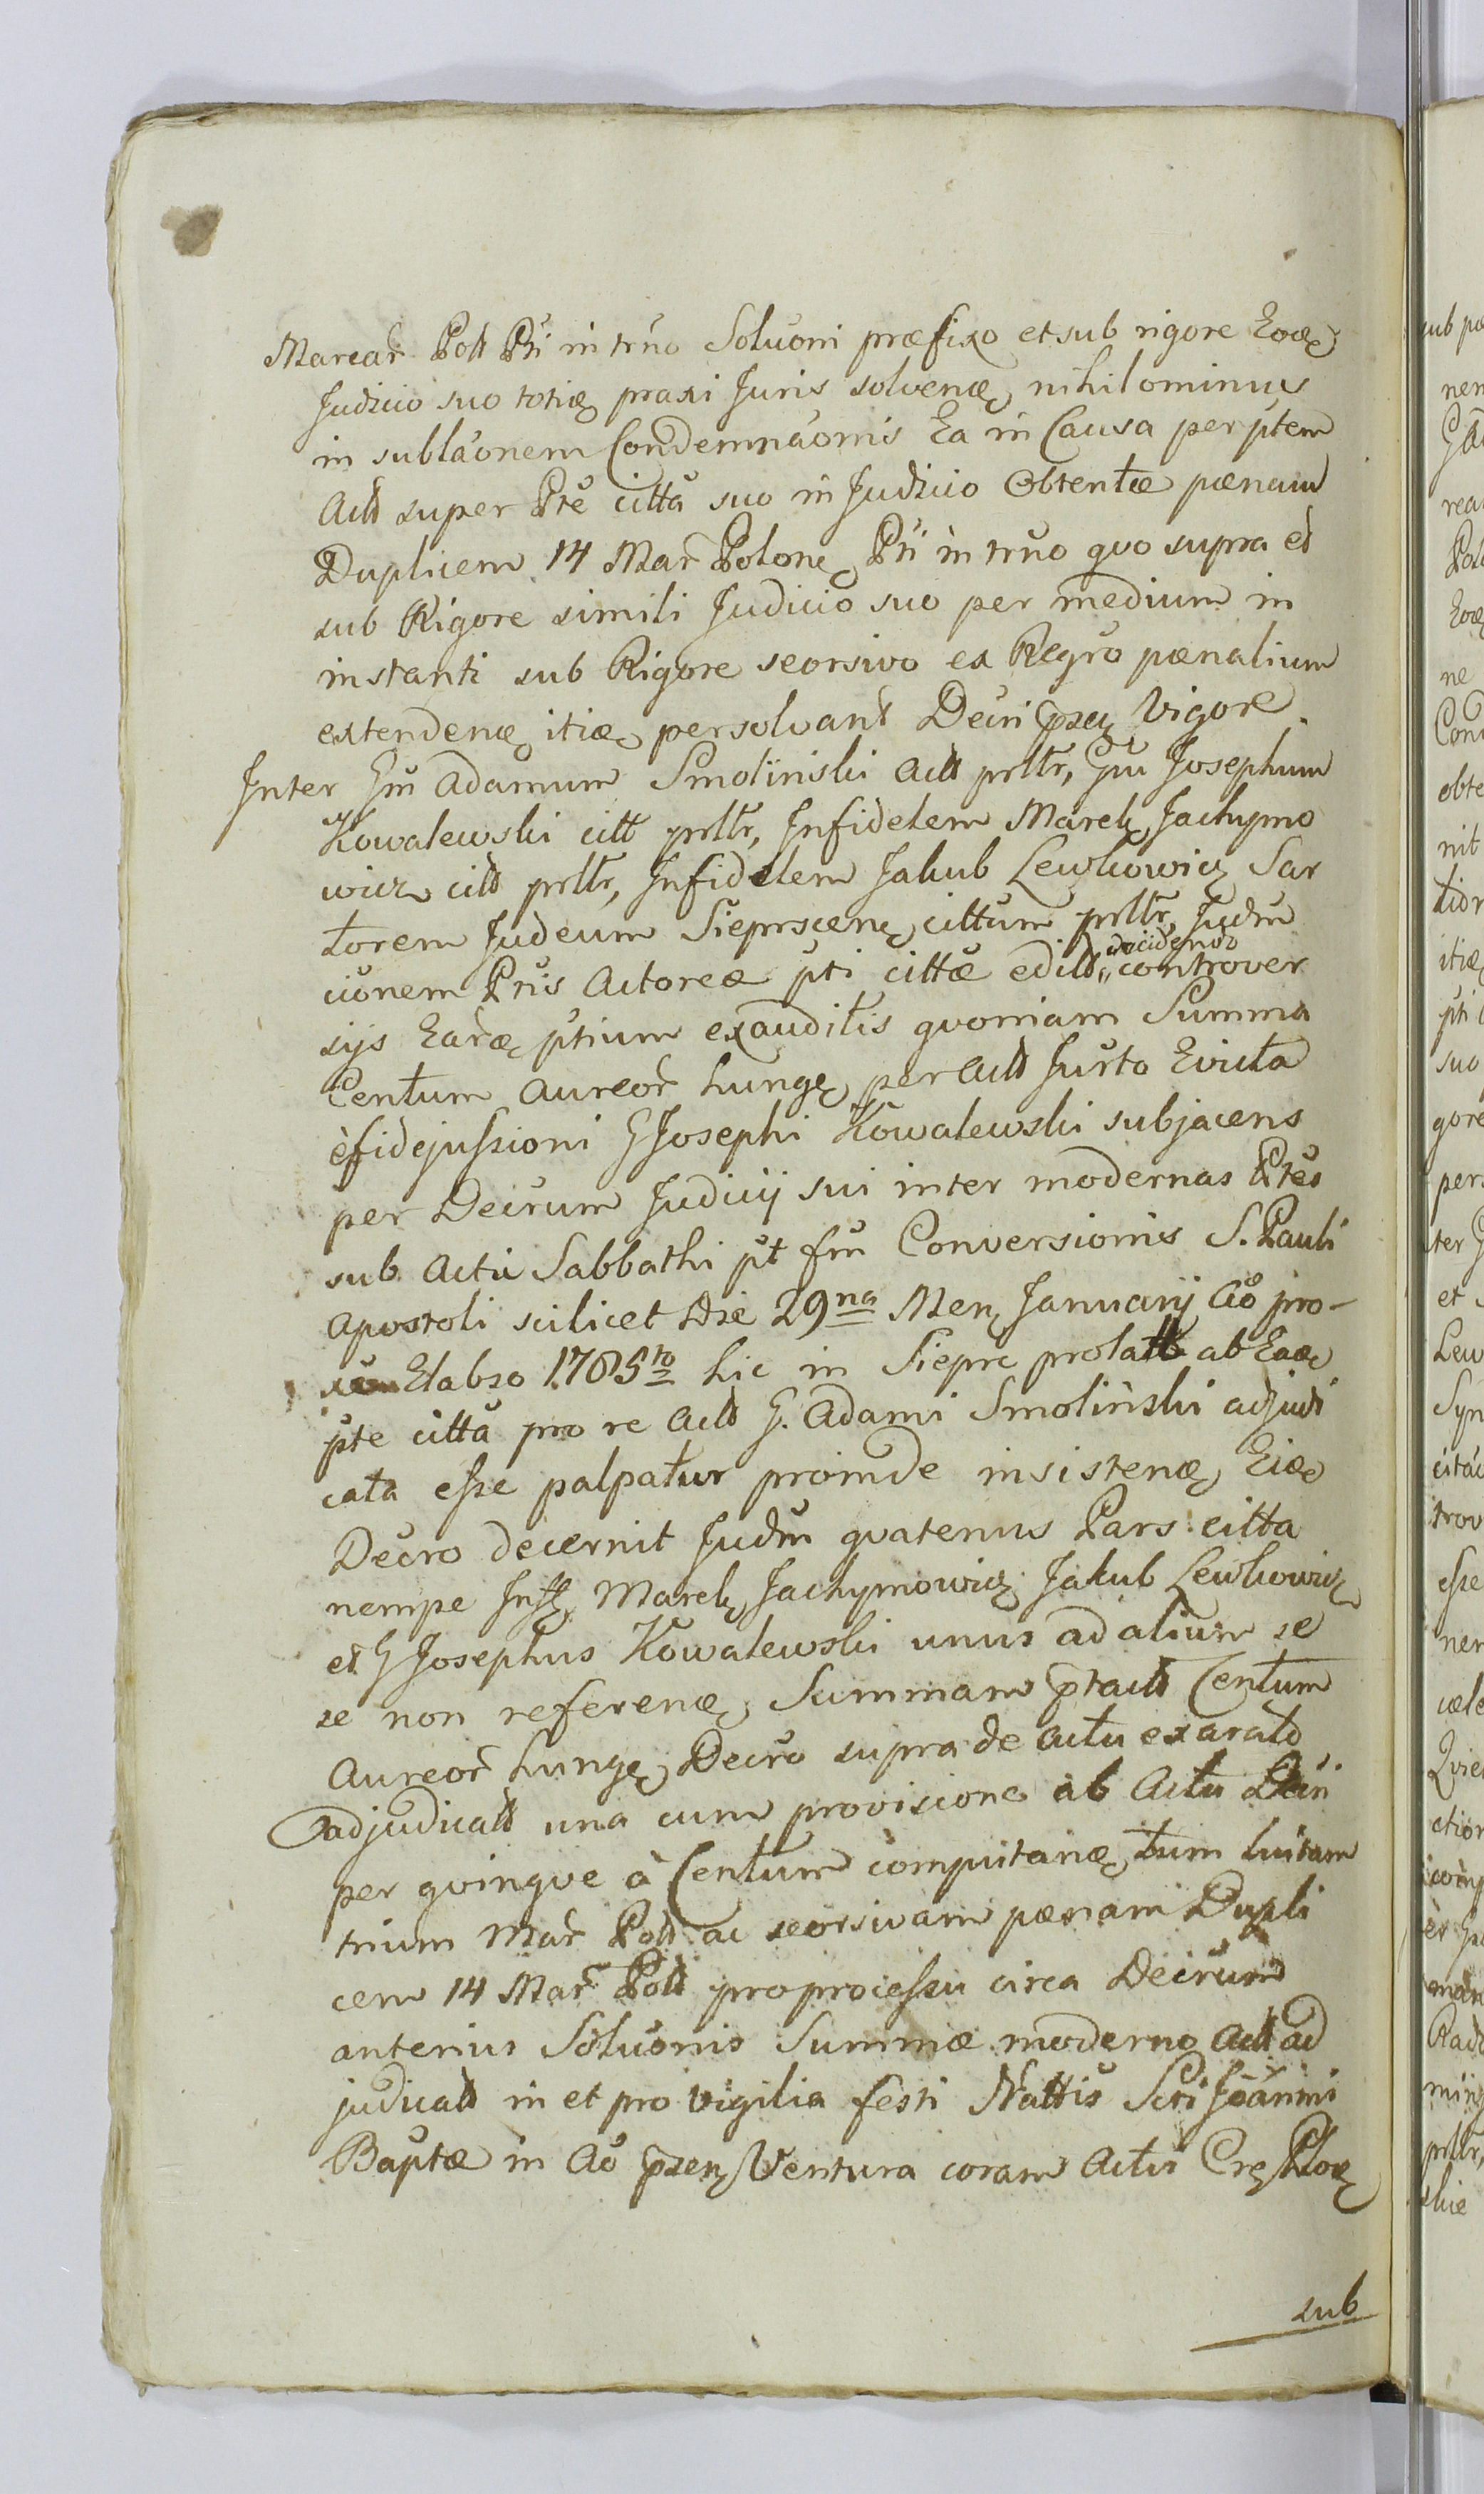 Marcar Poll Pti in trno Soluoni præfixo et sub rigore Eoæ
Judicio suo totiæ praxi Juris solvenæ nihilominus
in sublaonem Condemnaonis Ea in Causa per ptem
Actt super Pte citta suo in Judicio Obtentæ pœnam
Duplicem 14 Mar Polone Pti in trno quo supra et
sub Rigore simili Judicio suo per medium in
instanti sub Rigore seorsivo ex Regro pœnalium
extendenæ itiæ persolvant Decri pnze vigore
Inter Gm Adamum Smolinski Actt prttr, Gm Josephum
Kowalewski citt prttr, Infidelem Marek Jachymo
wicz citt prttr, Infidelem Jakub Lewkowicz Sar
torem Judeum Sieprscene cittum prttr Judm
cionem Ptis Actoreæ pti cittæ editt decidendo controver
sijs Earæ ptium exauditis quoniam Summa
Centum Aureor hunge per Actt Justo Evicta
èfidejussioni G Josephi Kowalewski subjacens
per Decrum Judicij sui inter modernas Ptes
sub Actu Sabbathi pt fm Conversionis S. Pauli
Apostoli scilicet Die 29na Men Januarij Ao pro-
Elabso 1785to hic in Siepre prolatt ab Eaæ
pte citta pro re Actt G. Adami Smolinski adjudi
cata esse palpatur proinde insistenæ Eiæ
Decro decernit Judm quatenus Pars citta
nempe Inf Marek Jachymowicz Jakub Lewkowicz
et G Josephus Kowalewski unus ad alium se
se non referenæ Summam ptactt Centum
Aureor hunge Decro supra de Actu exaratto
adjudicatt una cum provisione ab Actu Decri
per quinque à Centum computanæ tum luitam
trium Mar Poll ac seorsivam pœnam Dupli
cem 14 Mar Poll pro processu circa Decrum
anterius Soluonis Summæ moderno Actt ad
judicatt in et pro vigilia festi Nattis Scti Joanni
Baptæ in Ao pzen Ventura coram Actis Cre Ploe
sub